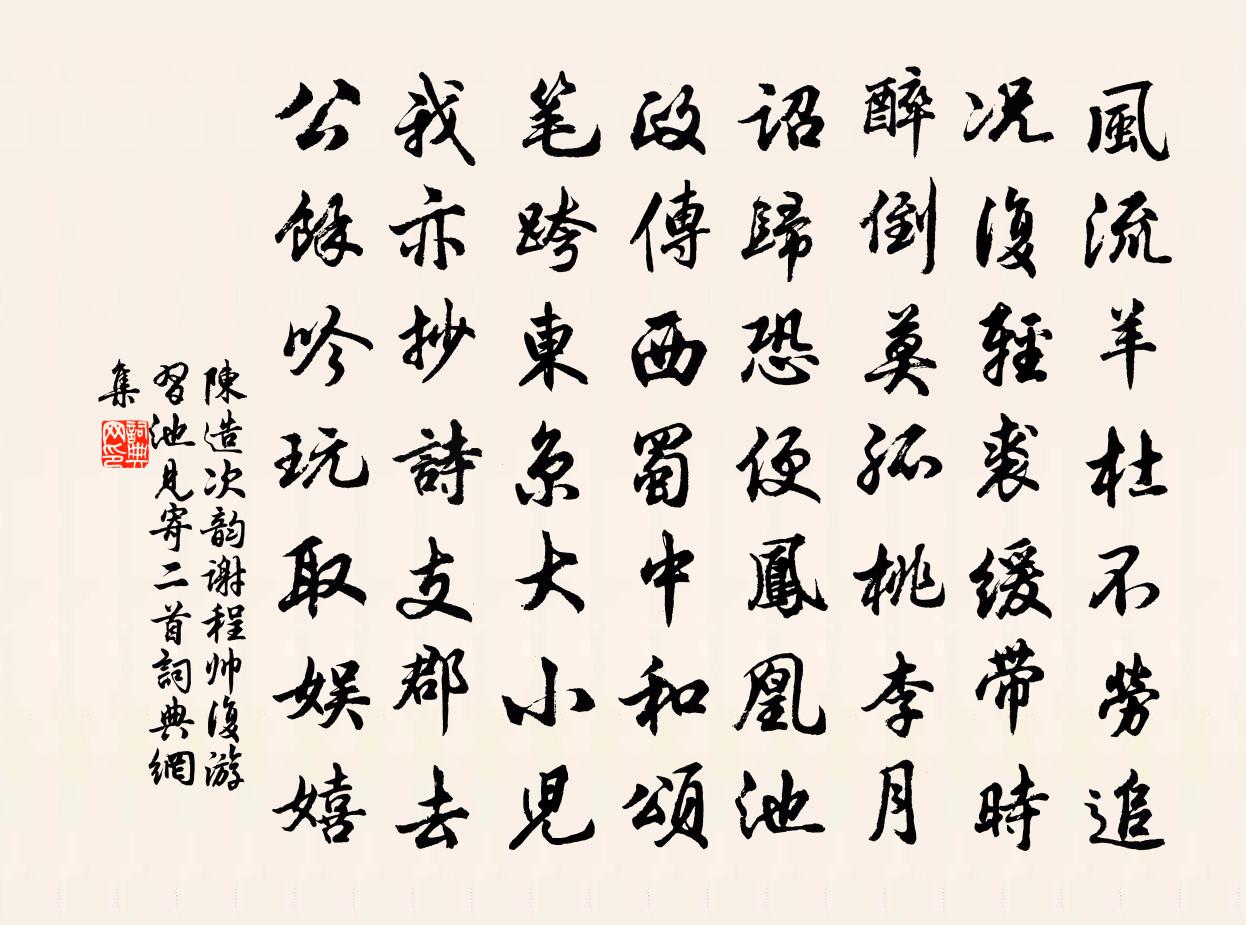 風流羊杜不勞追
况復輕裘緩帶時
醉倒莫孤桃李月
詔歸恐便鳳凰池
政傳西蜀中和頌
笔跨東京大小児
我亦抄詩支郡去
公餘吟玩取娱嬉
陳造次韵谢程帅復游
習池見寄二首詞典網
集
詞典网印